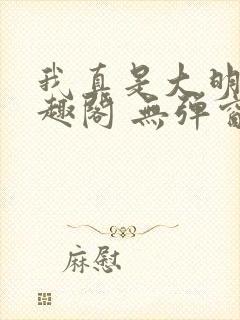 我真是大明
趣阁 無弹窗
麻慰